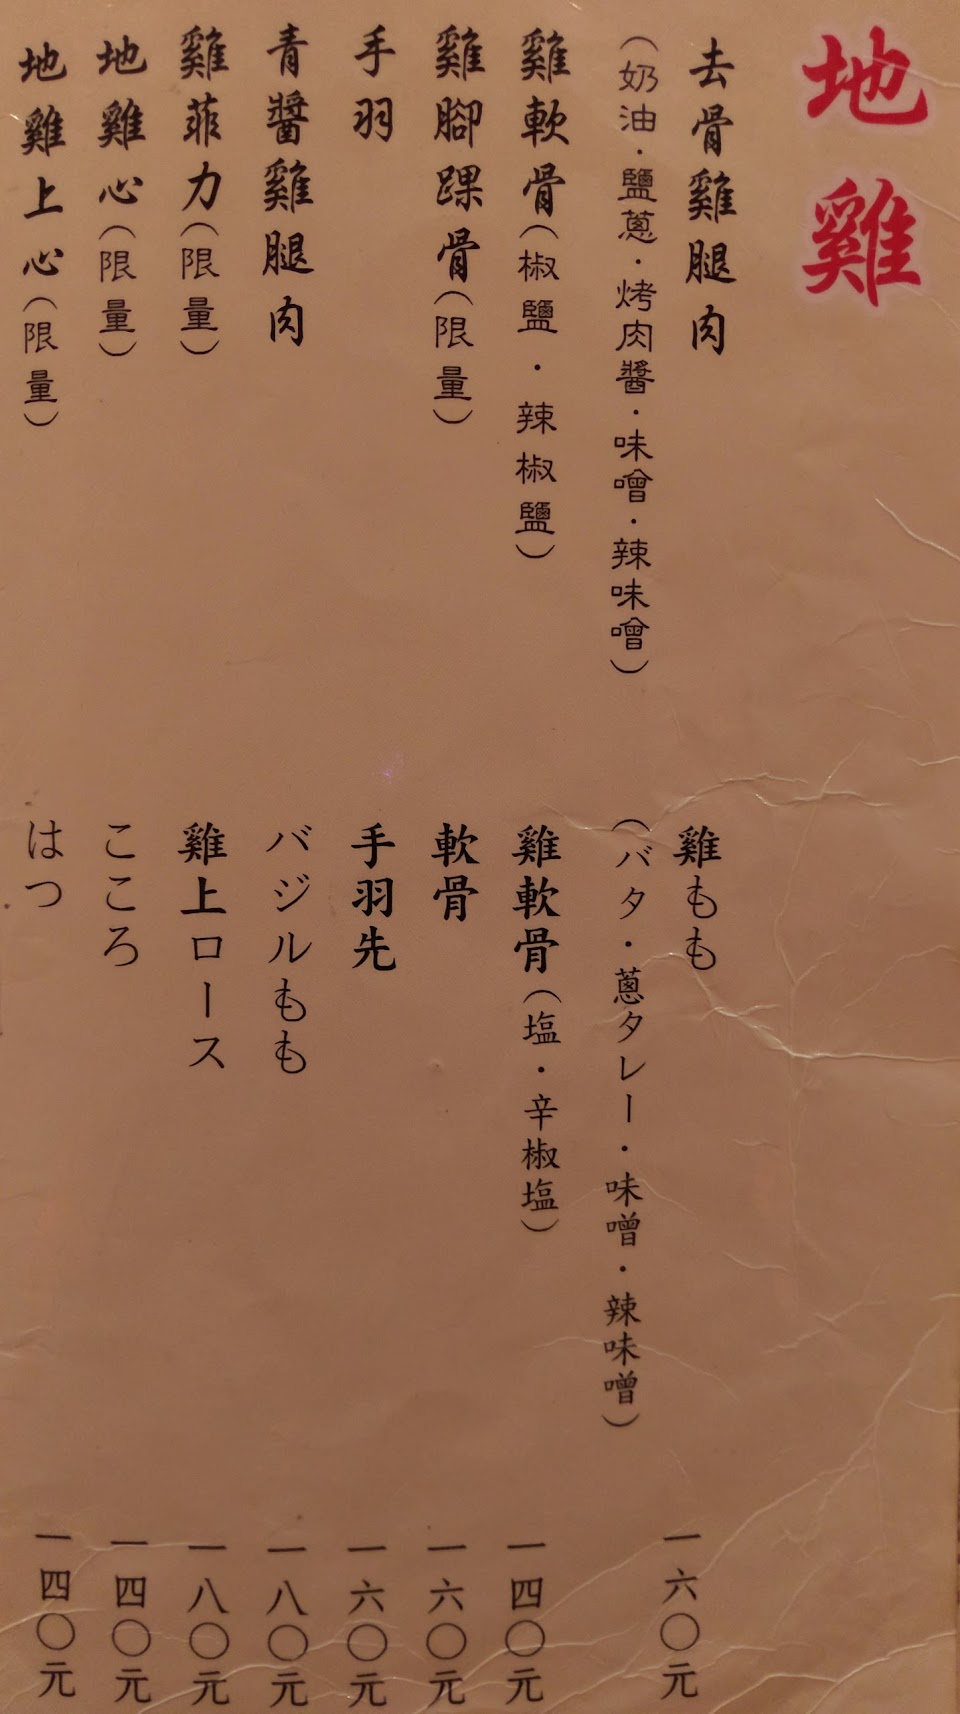 地雞
去骨雞腿肉 雞もも 一六〇元
（奶油・鹽蔥・烤肉醬・味噌・辣味噌） （バタ・蔥タレー・味噌・辣味噌）
雞軟骨（椒鹽・辣椒鹽） 雞軟骨（塩・辛椒塩） 一四〇元
雞腳踝骨（限量） 軟骨 一六〇元
手羽 手羽先 一六〇元
青醬雞腿肉 バジルもも 一八〇元
雞菲力（限量） 雞上ロース 一八〇元
地雞心（限量） こころ 一四〇元
地雞上心（限量） はつ 一四〇元